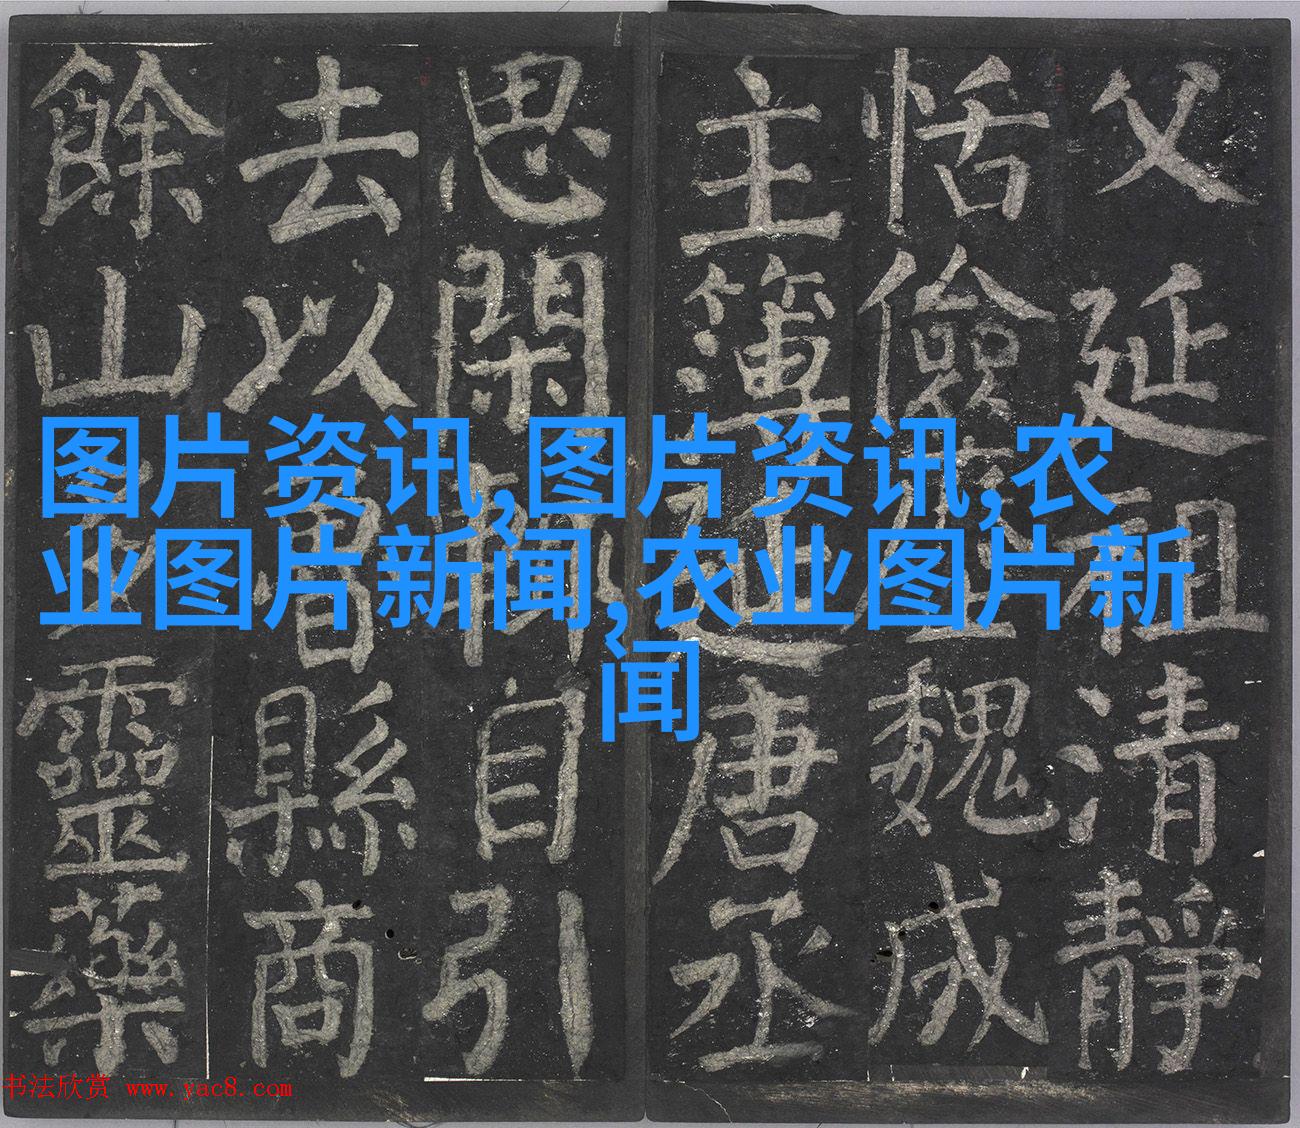 父延祖清靜
恬儉歷魏成
主簿延唐丞
思閑輒自引
去以魯縣商
餘山多靈藥
图片资讯,图片资讯,农
业图片新闻,农业图片新
闻
书法欣赏 www.yac8.com